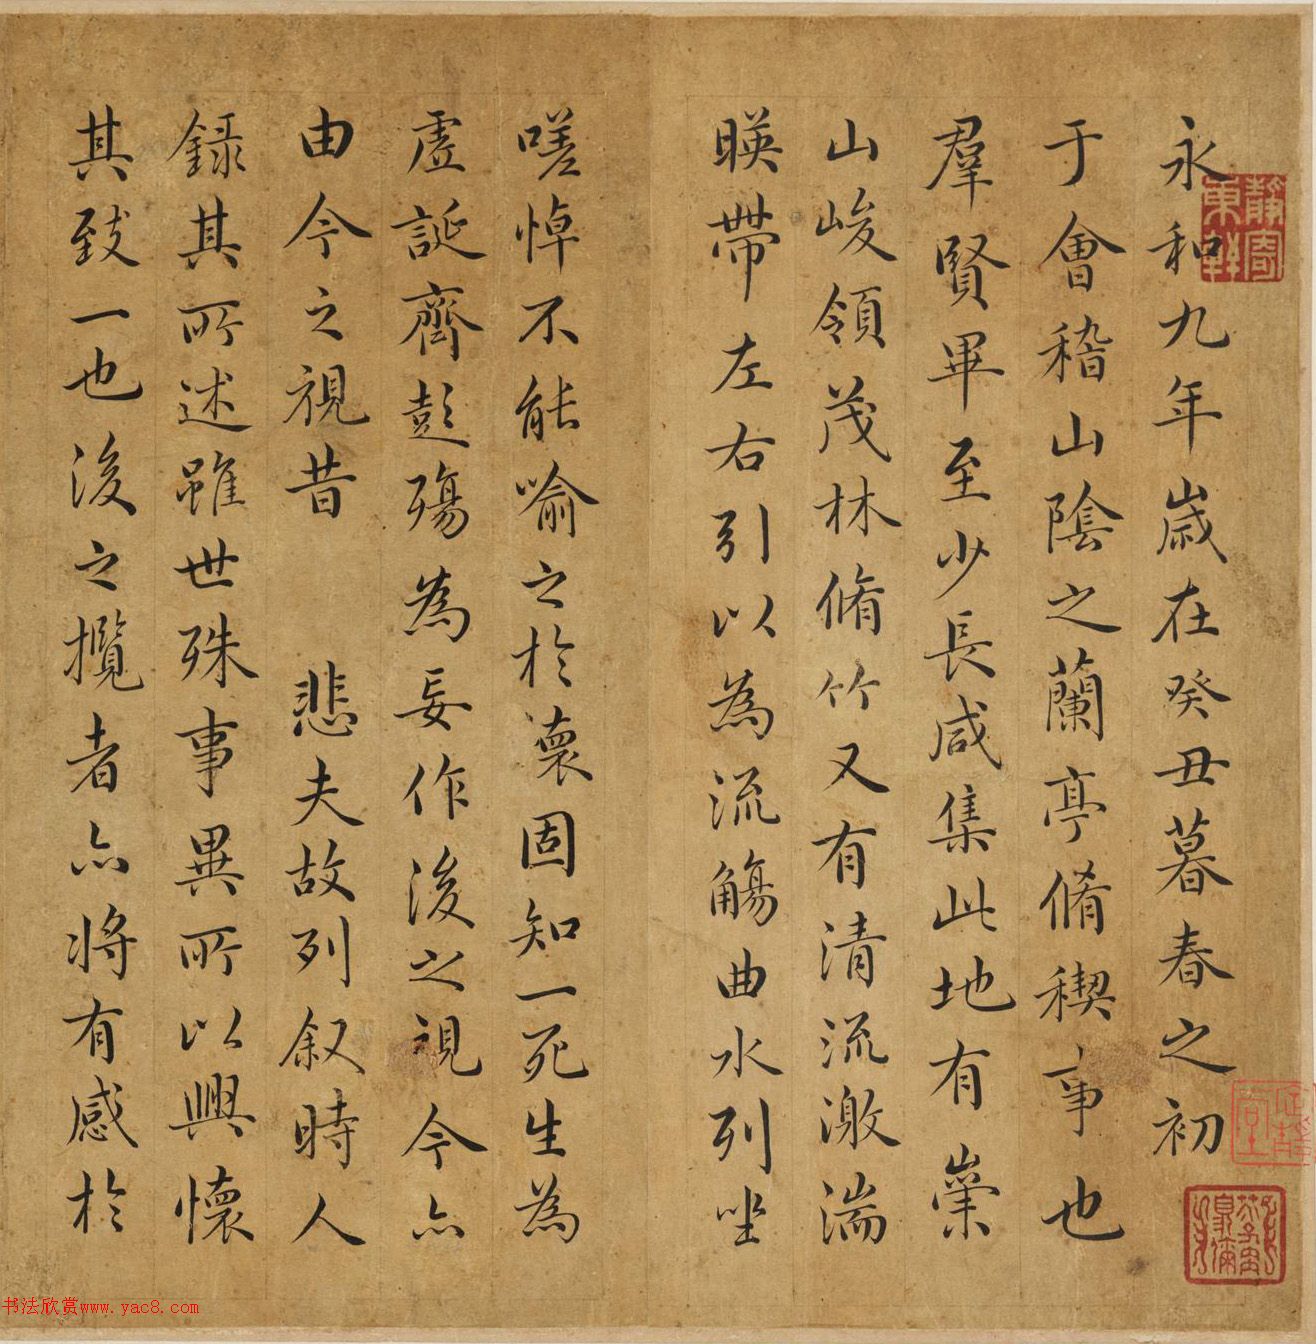 永和九年歲在癸丑暮春之初
于會稽山陰之蘭亭脩稧事也
羣賢畢至少長咸集此地有崇
山峻領茂林脩竹又有清流激湍
暎帶左右引以為流觴曲水列坐
嗟悼不能喻之於懷固知一死生為
虛誕齊彭殤為妄作後之視今亦
由今之視昔 悲夫故列叙時人
錄其所述雖世殊事異所以興懷
其致一也後之攬者亦將有感於
靜寄東軒
书法欣赏www.yac8.com